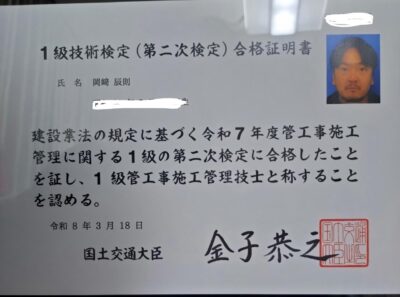 1級技術検定(第二次検定)合格証明書
氏 名 岡﨑 辰則
建設業法の規定に基づく令和7年度管工事施工
管理に関する1級の第二次検定に合格したこと
を証し、1級管工事施工管理技士と称すること
を認める。
令和 8 年 3 月 18 日
国土交通大臣 金子恭之